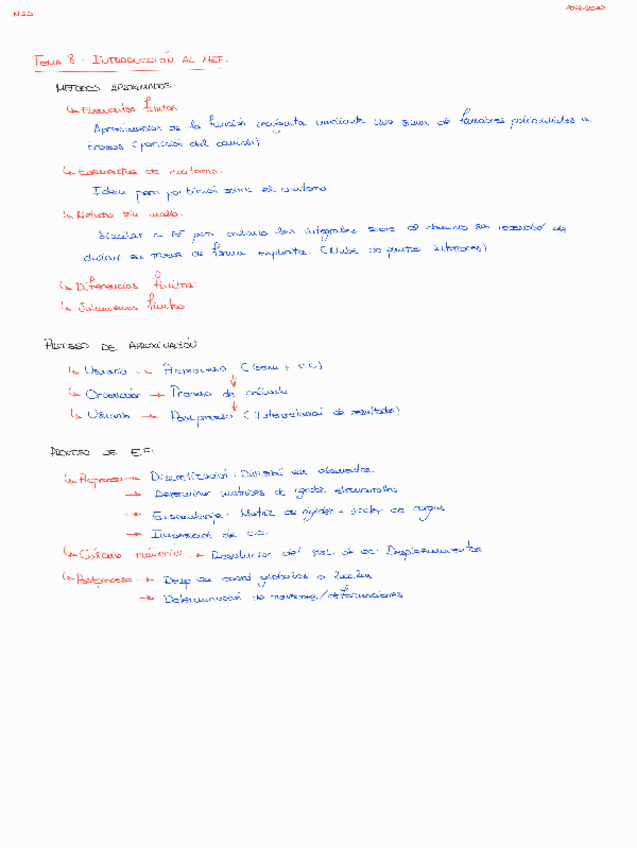 MSD
TEMA 8: INTRODUCCIÓN AL MEF.
MÉTODOS APROXIMADOS:
↳ Elementos finitos
Aproximación de la función incógnita mediante una suma de funciones polinómicas a
trozos (partición del dominio)
↳ Elementos de contorno:
Idem pero partición sobre el contorno
↳ Método sin malla:
Similar a EF pero calcula las integrales sobre el dominio sin necesidad de
dividir en trozos de forma explícita. (Nube de puntos interiores)
↳ Diferencias finitas:
↳ Volúmenes finitos
PROCESO DE APROXIMACIÓN
↳ Usuario → Preproceso (Geom + CC)
↳ Ordenador → Proceso de cálculo
↳ Usuario → Postproceso (Interpretación de resultados)
PROCESO DE E.F:
↳ Preproceso → Discretización: División en elementos.
→ Determinar matrices de rigidez elementales
→ Ensamblaje: Matriz de rigidez + vector de cargas
→ Imposición de c.c.
↳ Cálculo numérico → Resolución del sist. de ec. Desplazamientos
↳ Postproceso → Desp en coord globales o locales
→ Determinación de tensiones/deformaciones